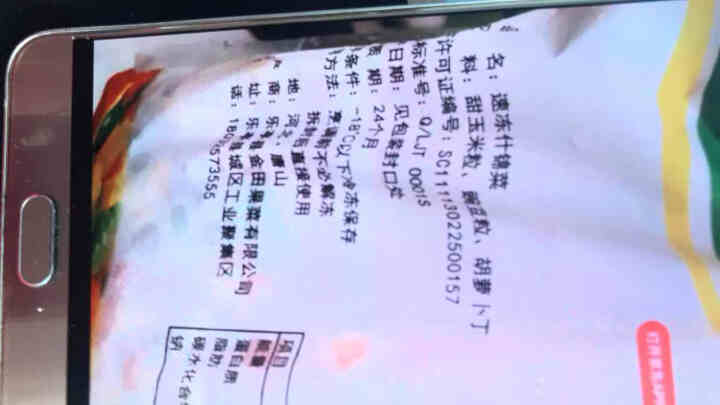 名：速冻什锦菜
料：甜玉米粒、豌豆粒、胡萝卜丁
许可证编号：SC11113022500157
标准号：Q/LJT 0001S
日期：见包装封口处
质 期：24个月
条件：-18℃以下冷冻保存
方法：烹调前不必解冻
拆封后直接使用
地：河北 唐山
商：乐 金田果菜有限公司
址：乐 城区工业聚集区
话：180 573555
项目
能量
蛋白质
脂肪
碳水化合
钠